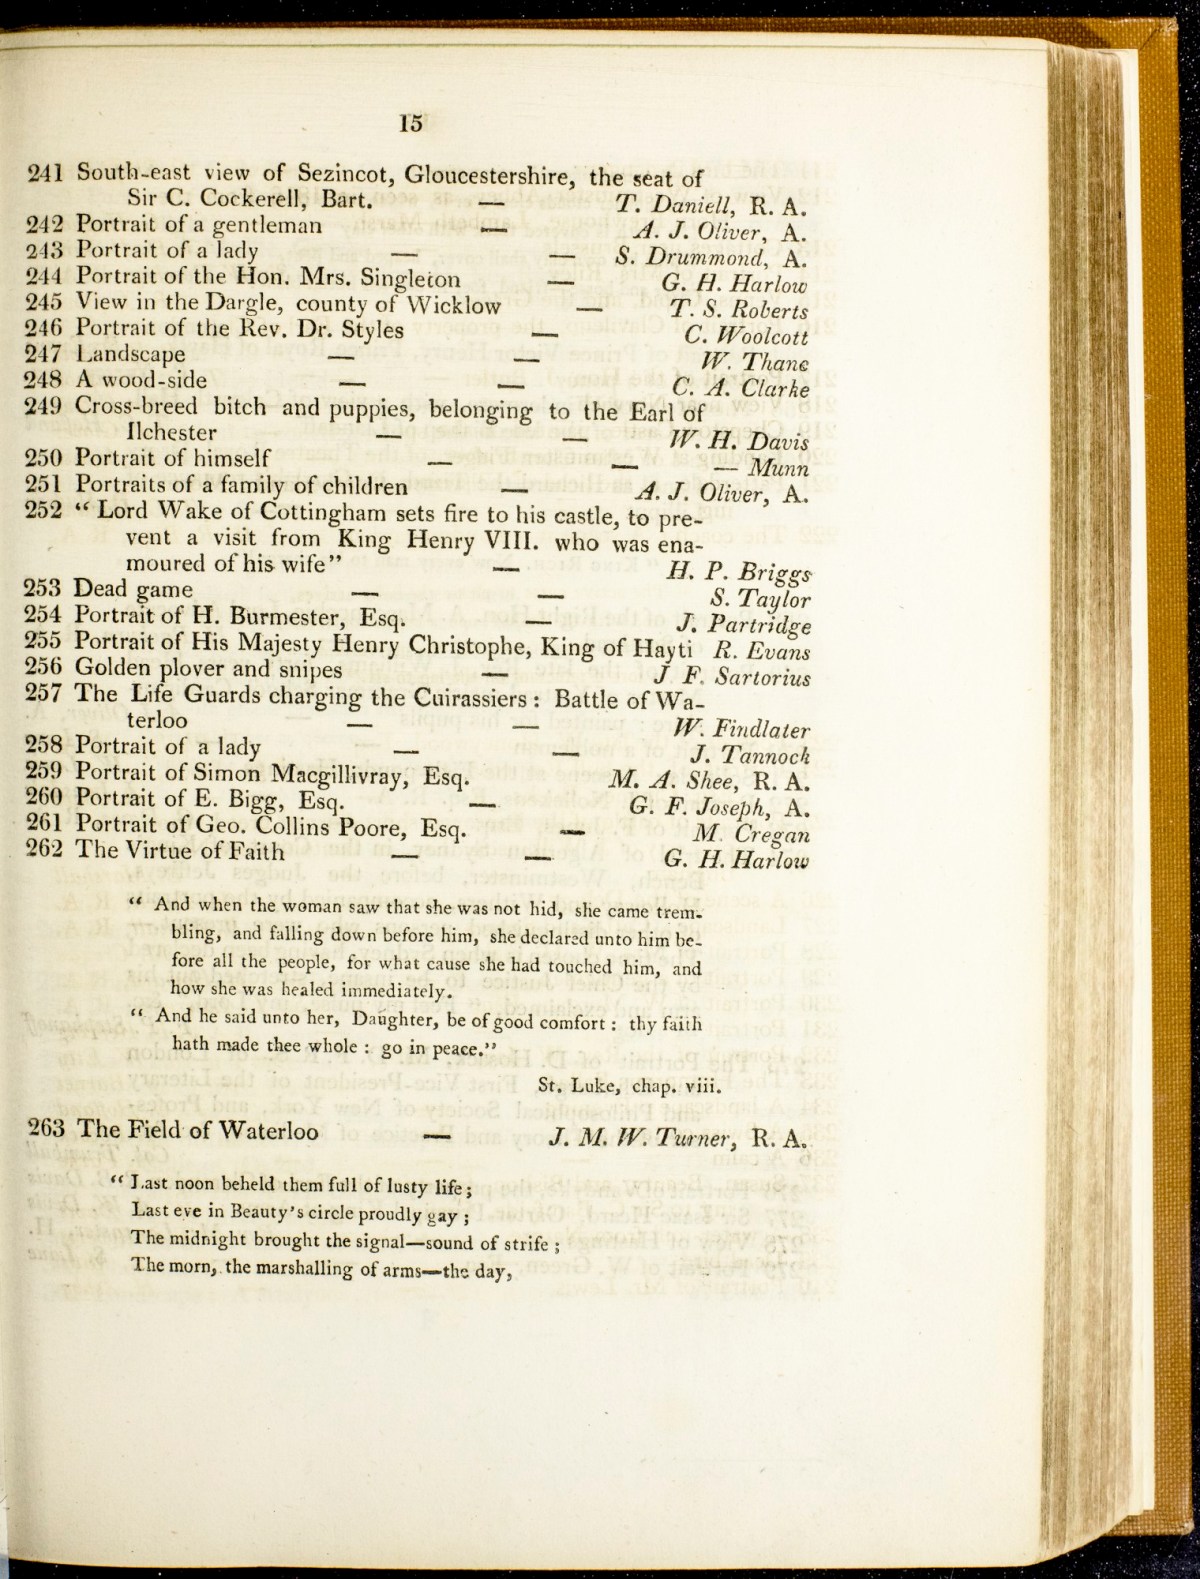 15
241 South-east view of Sezincot, Gloucestershire, the seat of
Sir C. Cockerell, Bart. — T. Daniell, R. A.
242 Portrait of a gentleman — A. J. Oliver, A.
243 Portrait of a lady — — S. Drummond, A.
244 Portrait of the Hon. Mrs. Singleton — G. H. Harlow
245 View in the Dargle, county of Wicklow — T. S. Roberts
246 Portrait of the Rev. Dr. Styles — C. Woolcott
247 Landscape — — W. Thane
248 A wood-side — — C. A. Clarke
249 Cross-breed bitch and puppies, belonging to the Earl of
Ilchester — — W. H. Davis
250 Portrait of himself — — — Munn
251 Portraits of a family of children — A. J. Oliver, A.
252 “ Lord Wake of Cottingham sets fire to his castle, to pre-
vent a visit from King Henry VIII. who was ena-
moured of his wife” — H. P. Briggs
253 Dead game — — S. Taylor
254 Portrait of H. Burmester, Esq. — J. Partridge
255 Portrait of His Majesty Henry Christophe, King of Hayti R. Evans
256 Golden plover and snipes — J F. Sartorius
257 The Life Guards charging the Cuirassiers : Battle of Wa-
terloo — — W. Findlater
258 Portrait of a lady — — J. Tannock
259 Portrait of Simon Macgillivray, Esq. M. A. Shee, R. A.
260 Portrait of E. Bigg, Esq. — G. F. Joseph, A.
261 Portrait of Geo. Collins Poore, Esq. — M. Cregan
262 The Virtue of Faith — — G. H. Harlow
“ And when the woman saw that she was not hid, she came trem-
bling, and falling down before him, she declared unto him be-
fore all the people, for what cause she had touched him, and
how she was healed immediately.
“ And he said unto her, Daughter, be of good comfort : thy faith
hath made thee whole : go in peace.”
St. Luke, chap. viii.
263 The Field of Waterloo — J. M. W. Turner, R. A.
“ Last noon beheld them full of lusty life ;
Last eve in Beauty's circle proudly gay ;
The midnight brought the signal—sound of strife ;
The morn, the marshalling of arms—the day,